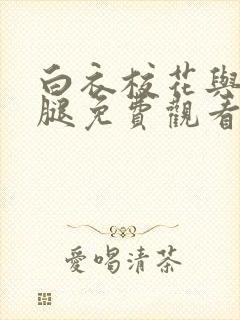 白衣校花與
腿免費觀看
愛喝清茶